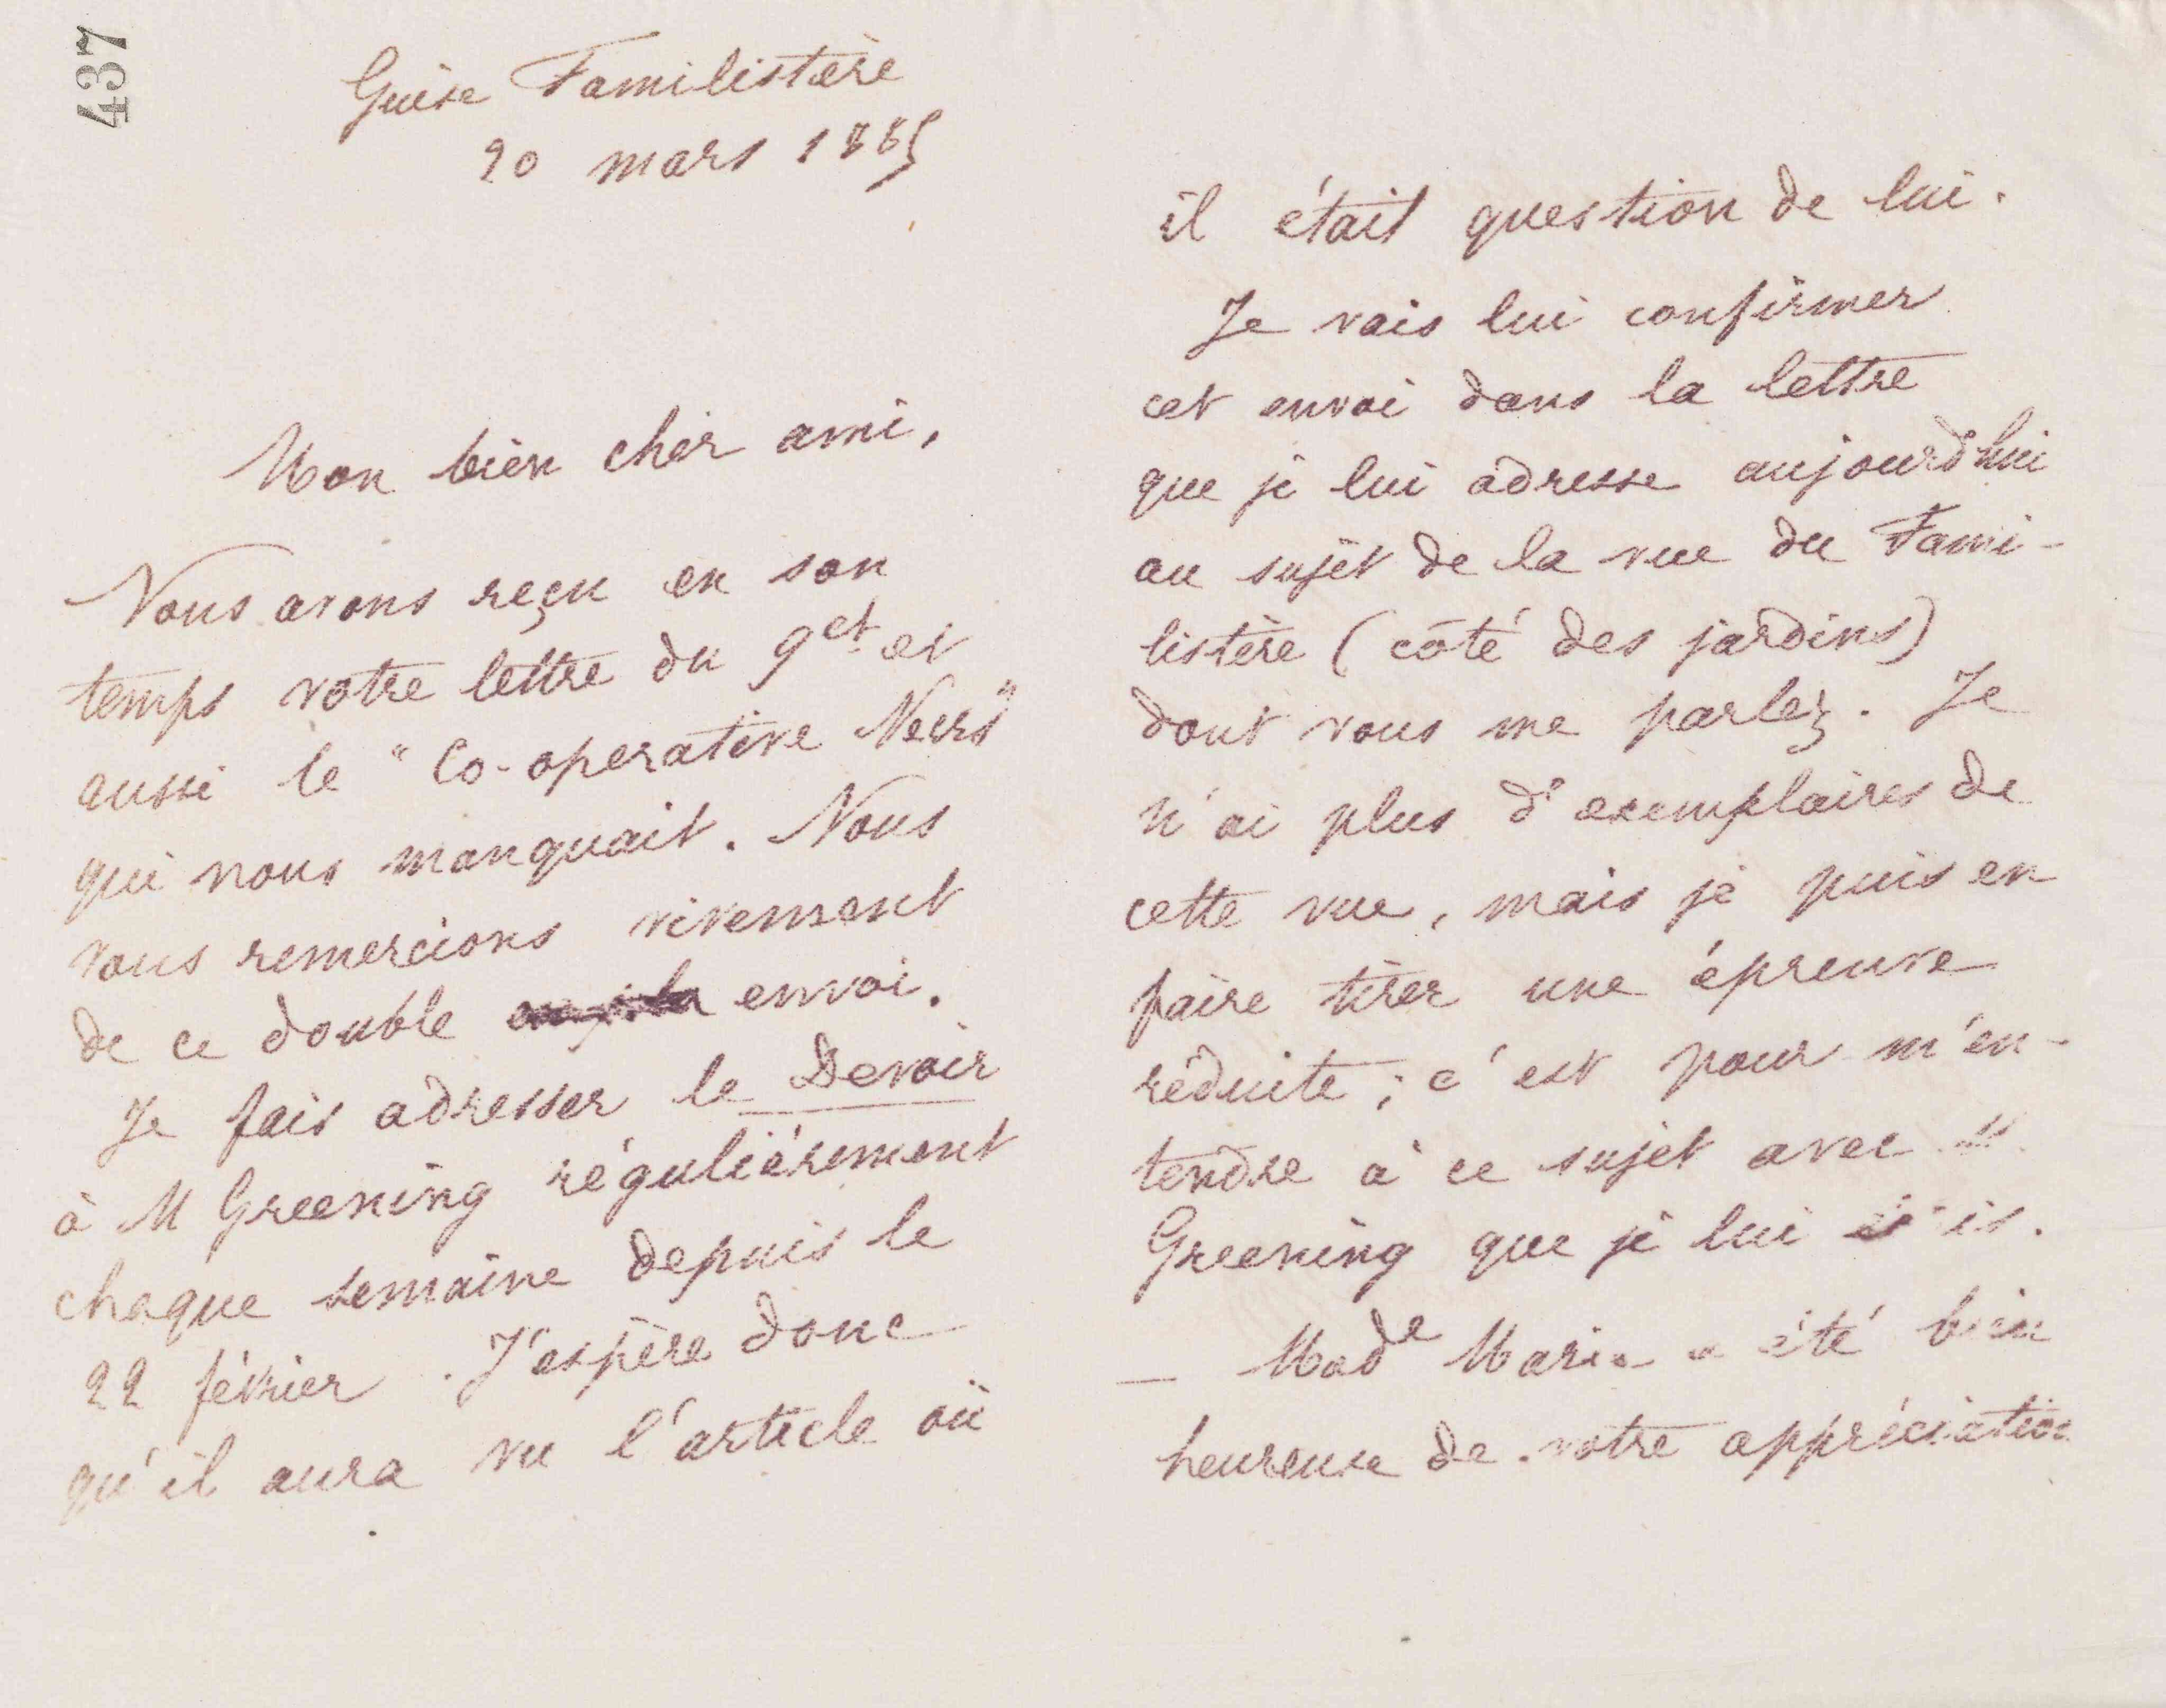 437
Guise Familistère
20 mars 1885
Mon bien cher ami,
Nous avons reçu en son
temps votre lettre du 9ct et
aussi le "Co-operative News"
qui nous manquait. Nous
vous remercions vivement
de ce double envoi.
Je fais adresser le Devoir
à M Greening régulièrement
chaque semaine depuis le
22 février. J'espère donc
qu'il aura vu l'article où
il était question de lui.
Je vais lui confirmer
cet envoi dans la lettre
que je lui adresse aujourd'hui
au sujet de la vue du Fami-
listère (côté des jardins)
dont vous me parlez. Je
n'ai plus d'exemplaires de
cette vue, mais je puis en
faire tirer une épreuve
réduite; c'est pour m'en-
tendre à ce sujet avec M
Greening que je lui écris.
— Made Marie a été bien
heureuse de votre appréciation